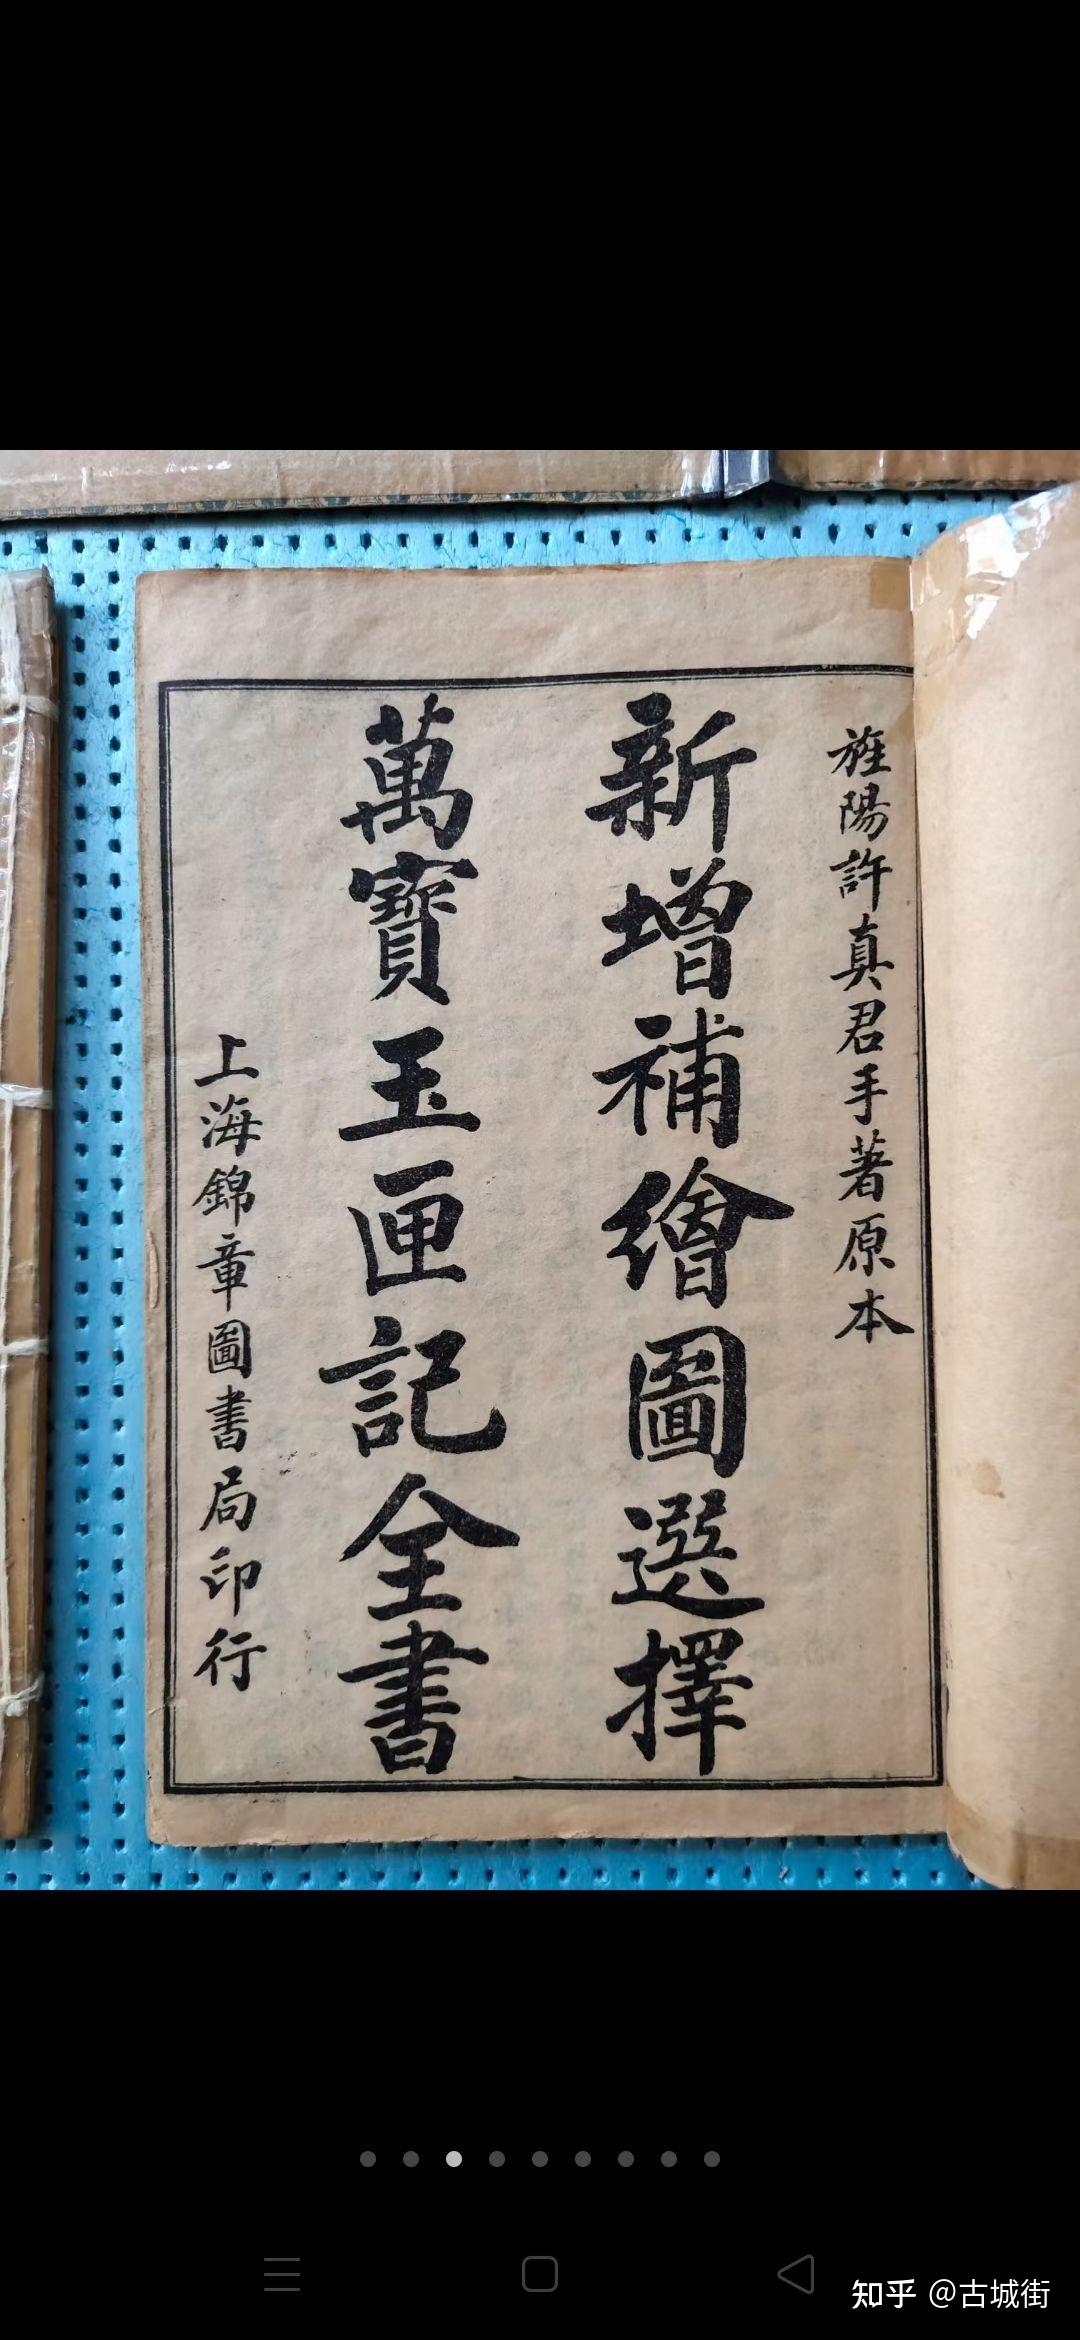 旌陽許真君手著原本
新增補繪圖選擇
萬寶玉匣記全書
上海錦章圖書局印行
知乎 @古城街